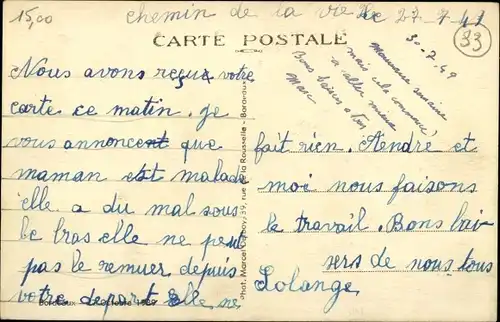 15,00
chemin de la vie le 27-7-49
33
CARTE POSTALE
30-7-49
Mauvaise semaine
mais cela commence
a aller mieux
Bons baisers a tous
Marc
Nous avons reçue votre
carte ce matin. Je
vous annoncent que
maman est malade
elle a du mal sous
le bras elle ne peut
pas le remuer depuis
votre depart elle ne
fait rien. André et
moi nous faisons
le travail. Bons bai
sers de nous tous
Solange
Phot. Marcel 39, rue de la Rousselle - Bordeaux
Bordeaux octobre